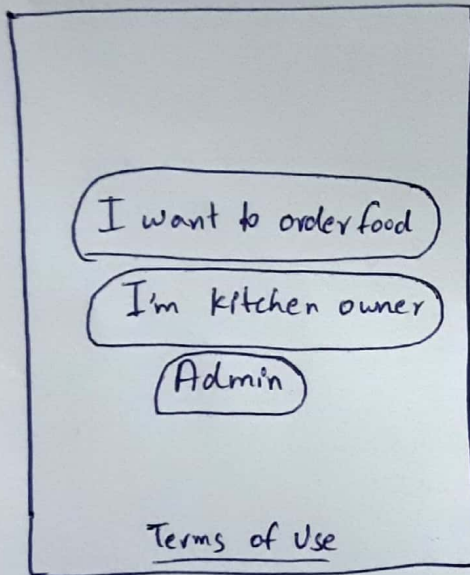 I want to order food
I'm kitchen owner
Admin
Terms of Use